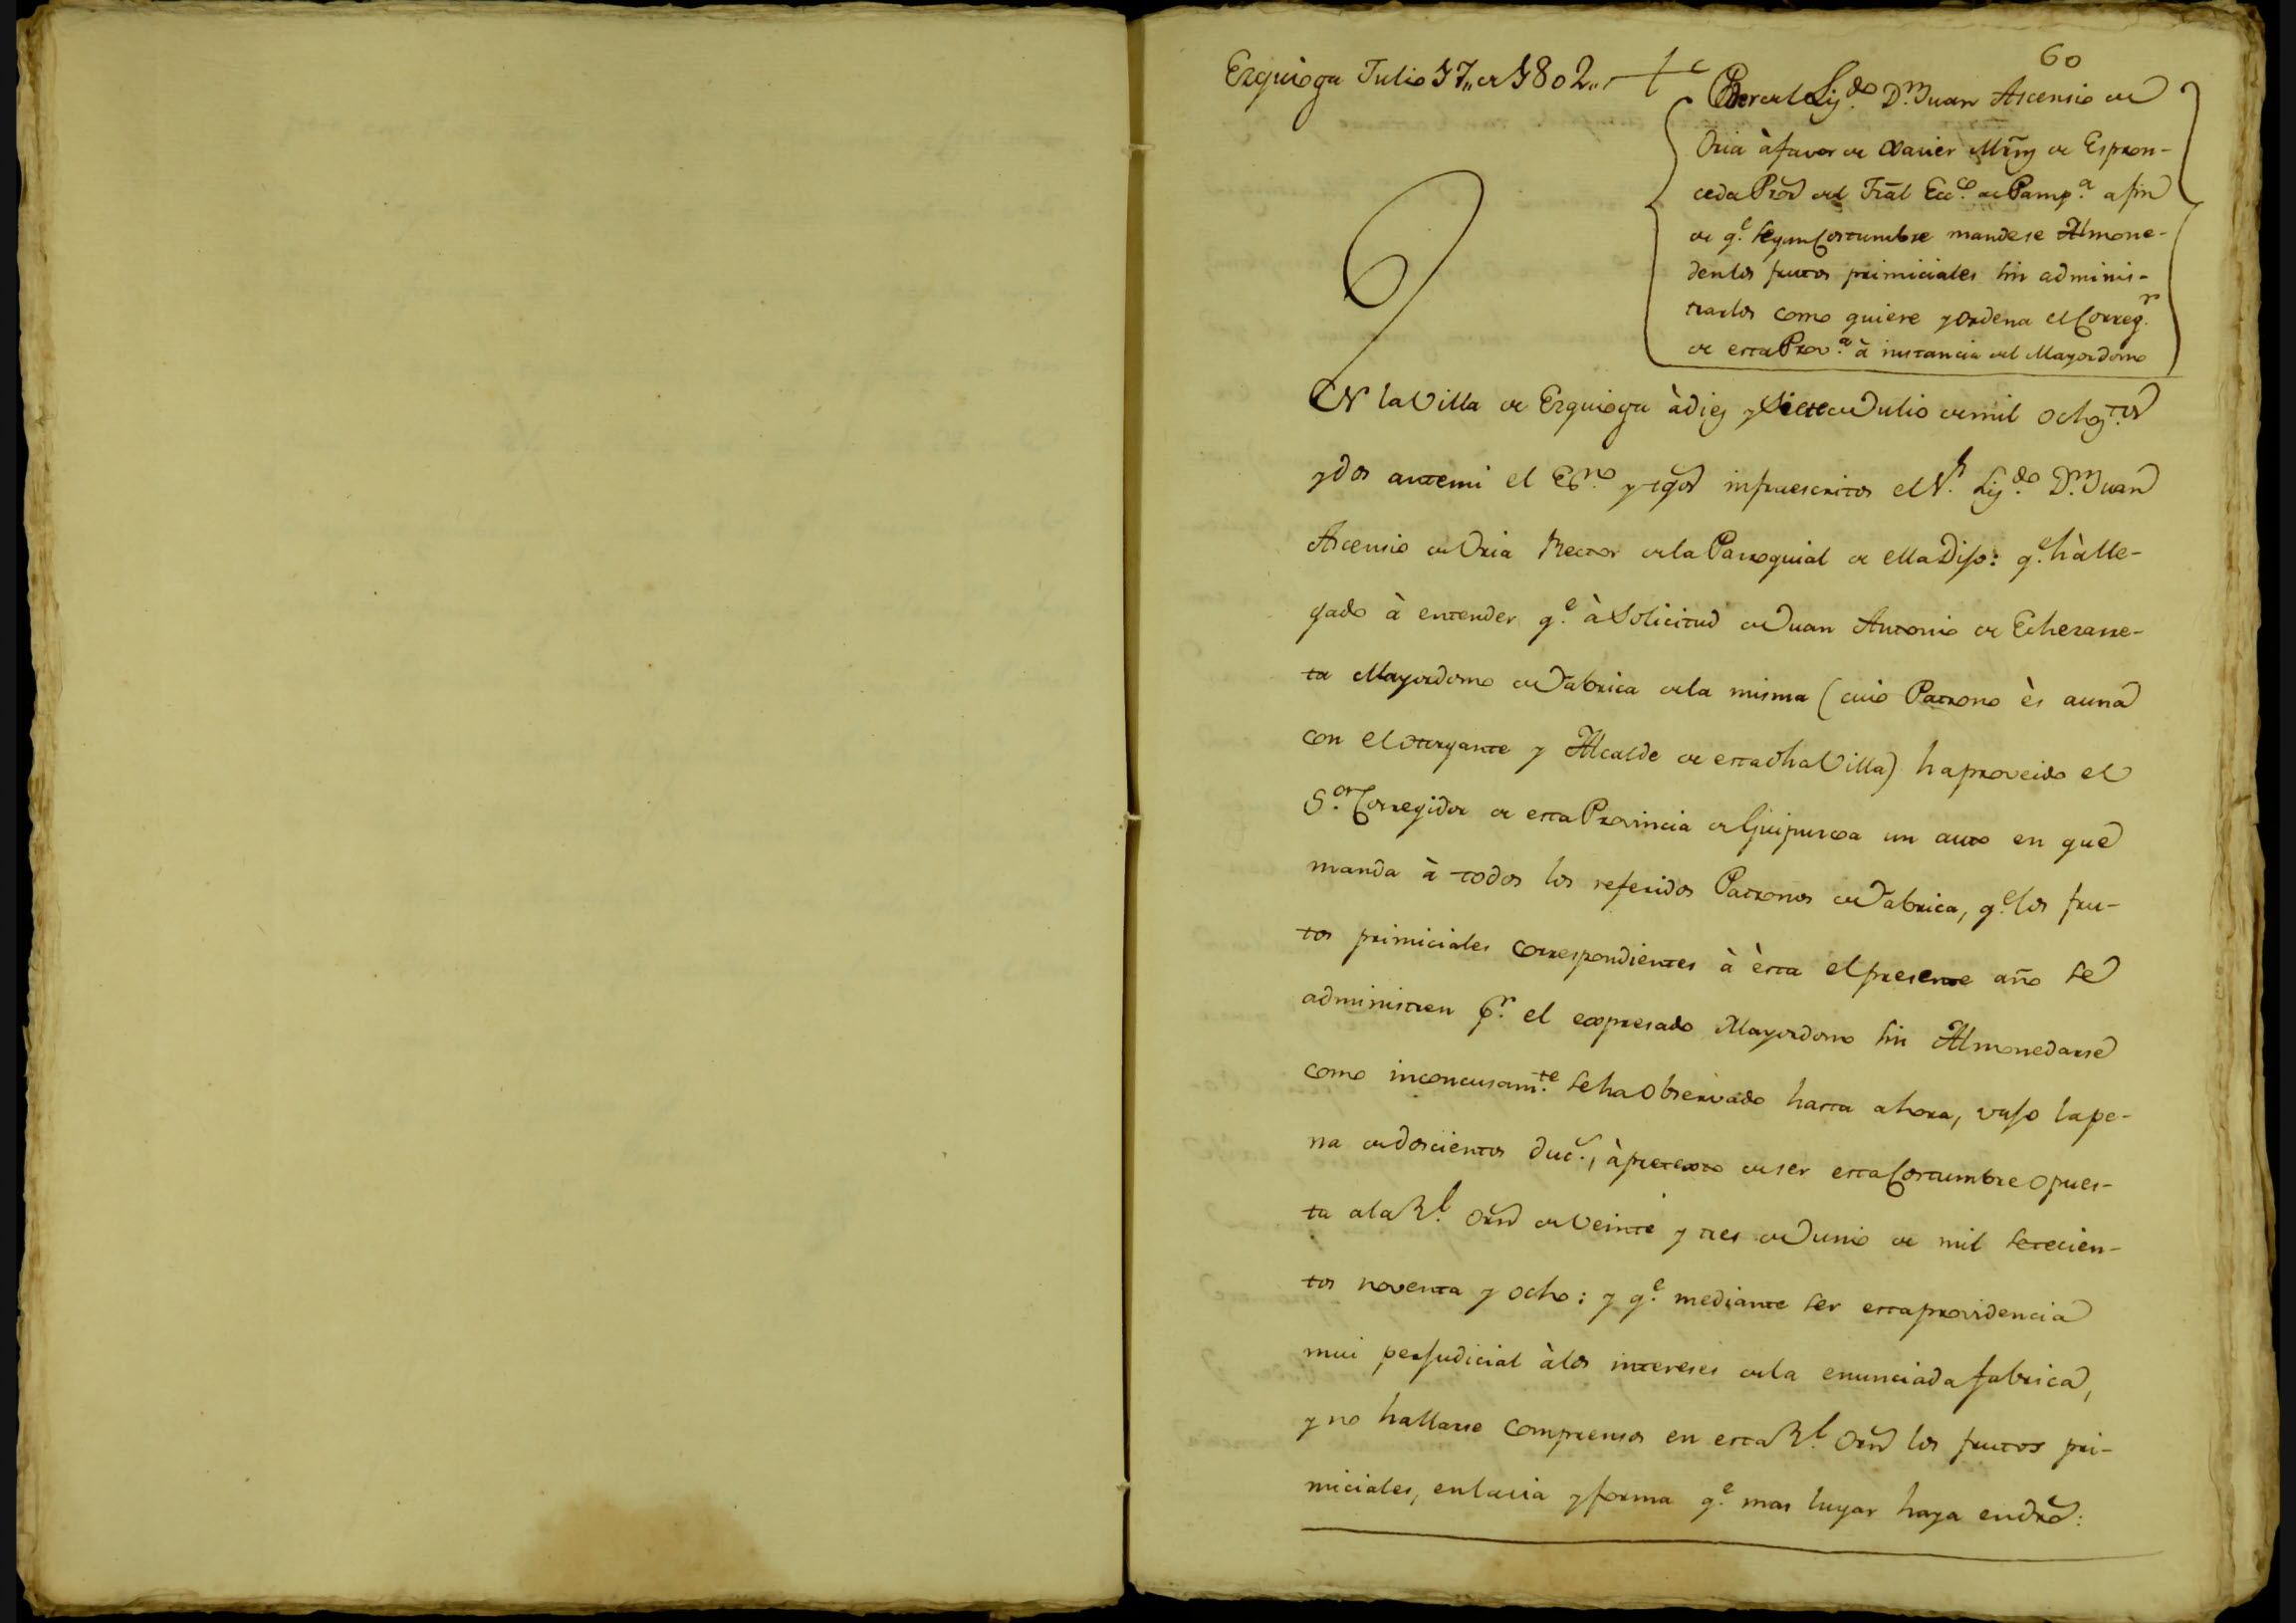 60
Ezquioga Julio 17,, de 1802,,
Poder del Liz.do D.n Juan Ascensio de
Oria à favor de Xavier Mrñz de Espron-
ceda Pror del Tral Ecc.co de Pamp.a a fin
de q.e segun Costumbre mandese Almone-
den los frutos primiciales sin adminis-
trarlos como quiere y Ordena el Correg.r
de esta Prov.a à instancia del Mayordomo
EN la Villa de Ezquioga à diez y Siete de Julio de mil ochoz.tos
y dos ante mi el Es.no y tgos infraescritos el S.r Liz.do D.n Juan
Ascensio de Oria Rector de la Parroquial de ella Dijo: q.e hà lle-
gado à entender q.e à Solicitud de Juan Antonio de Echezarre-
ta Mayordomo de Fabrica de la misma (cuio Patrono ès auna
con el otorgante y Alcalde de esta dha Villa) ha proveido el
S.or Corregidor de esta Provincia de Guipuzcoa un auto en que
manda à todos los referidos Patronos de Fabrica, q.e los fru-
tos primiciales correspondientes à èsta el presente año se
administren p.r el expresado Mayordomo sin Almonedarse
como inconcusam.te se ha Observado hasta ahora, vajo la pe-
na de doscientos duc.s, à pretexto de ser esta Costumbre opues-
ta a la R.l Orn de Veinte y tres de Junio de mil setecien-
tos noventa y ocho: y q.e mediante ser esta providencia
mui perjudicial à los intereses de la enunciada fabrica,
y no hallarse comprensos en esta R.l Orn los frutos pri-
miciales, en la via y forma q.e mas lugar haya en dro: